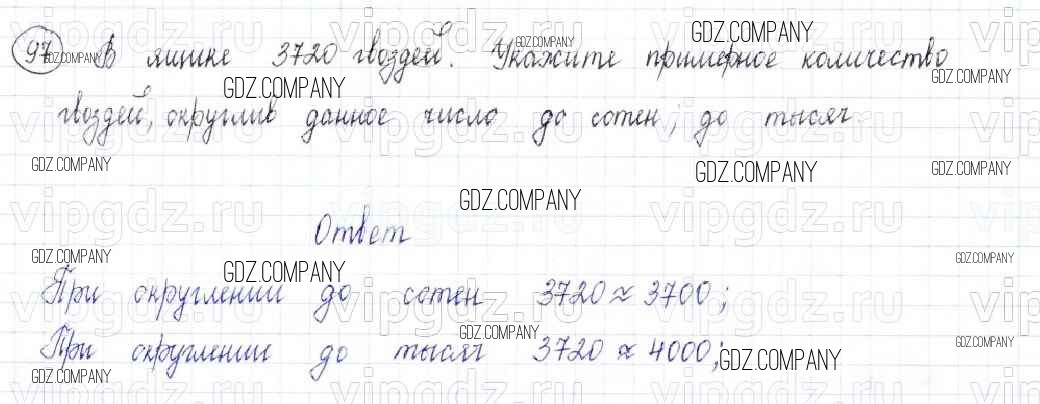 97 В ящике 3720 гвоздей. Укажите примерное количество
гвоздей, округлив данное число до сотен; до тысяч.
Ответ
При округлении до сотен 3720 ≈ 3700;
При округлении до тысяч 3720 ≈ 4000;
GDZ.COMPANY
vipgdz.ru